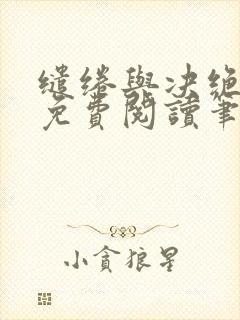 繾綣與决絕
免費閱讀筆
小貪狼星